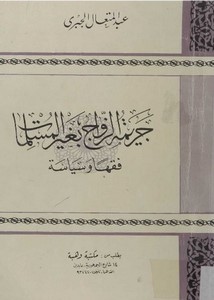 عبد المتعال الجبري
جريمة الزواج بغير المسلمات
فقها وسياسة
يطلب من: مكتبة وهبة
١٤ شارع الجمهورية. عابدين
القاهرة